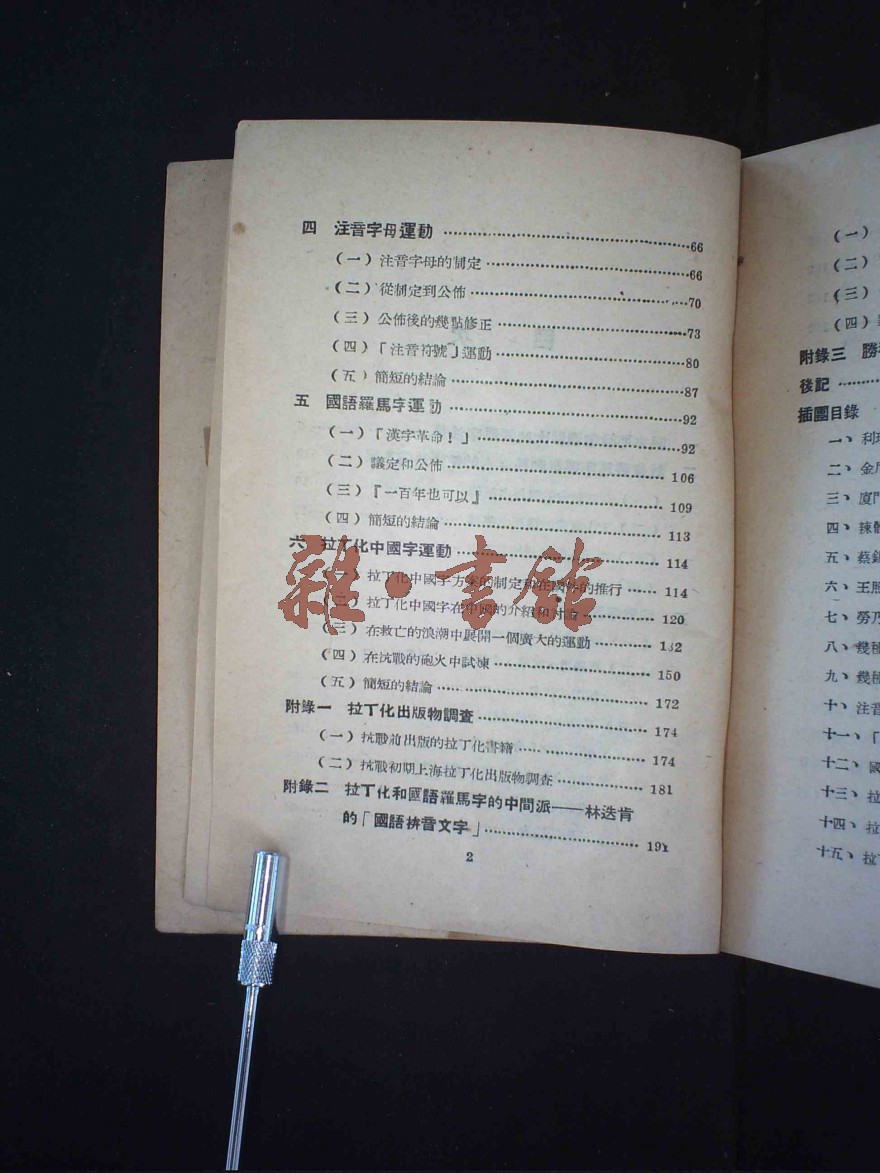 四 注音字母運動 66
（一）注音字母的制定 66
（二）從制定到公佈 70
（三）公佈後的幾點修正 73
（四）「注音符號」運動 80
（五）簡短的結論 87
五 國語羅馬字運動 92
（一）「漢字革命！」 92
（二）議定和公佈 106
（三）『一百年也可以』 109
（四）簡短的結論 113
六 拉丁化中國字運動 114
（一）拉丁化中國字方案的制定和在國外的推行 114
（二）拉丁化中國字在中國的介紹和討論 120
（三）在救亡的浪潮中展開一個廣大的運動 132
（四）在抗戰的砲火中試煉 150
（五）簡短的結論 172
附錄一 拉丁化出版物調查 174
（一）抗戰前出版的拉丁化書籍 174
（二）抗戰初期上海拉丁化出版物調查 181
附錄二 拉丁化和國語羅馬字的中間派——林迭肯
的「國語拼音文字」 191
2
雜·書館
（一）
（二）
（三）
（四）
附錄三 勝
後記
插圖目錄
一、利
二、金
三、廈門
四、
五、蔡錫
六、王照
七、勞乃
八、幾種
九、幾種
十、注音
十一、「
十二、國
十三、拉
十四、拉
十五、拉丁